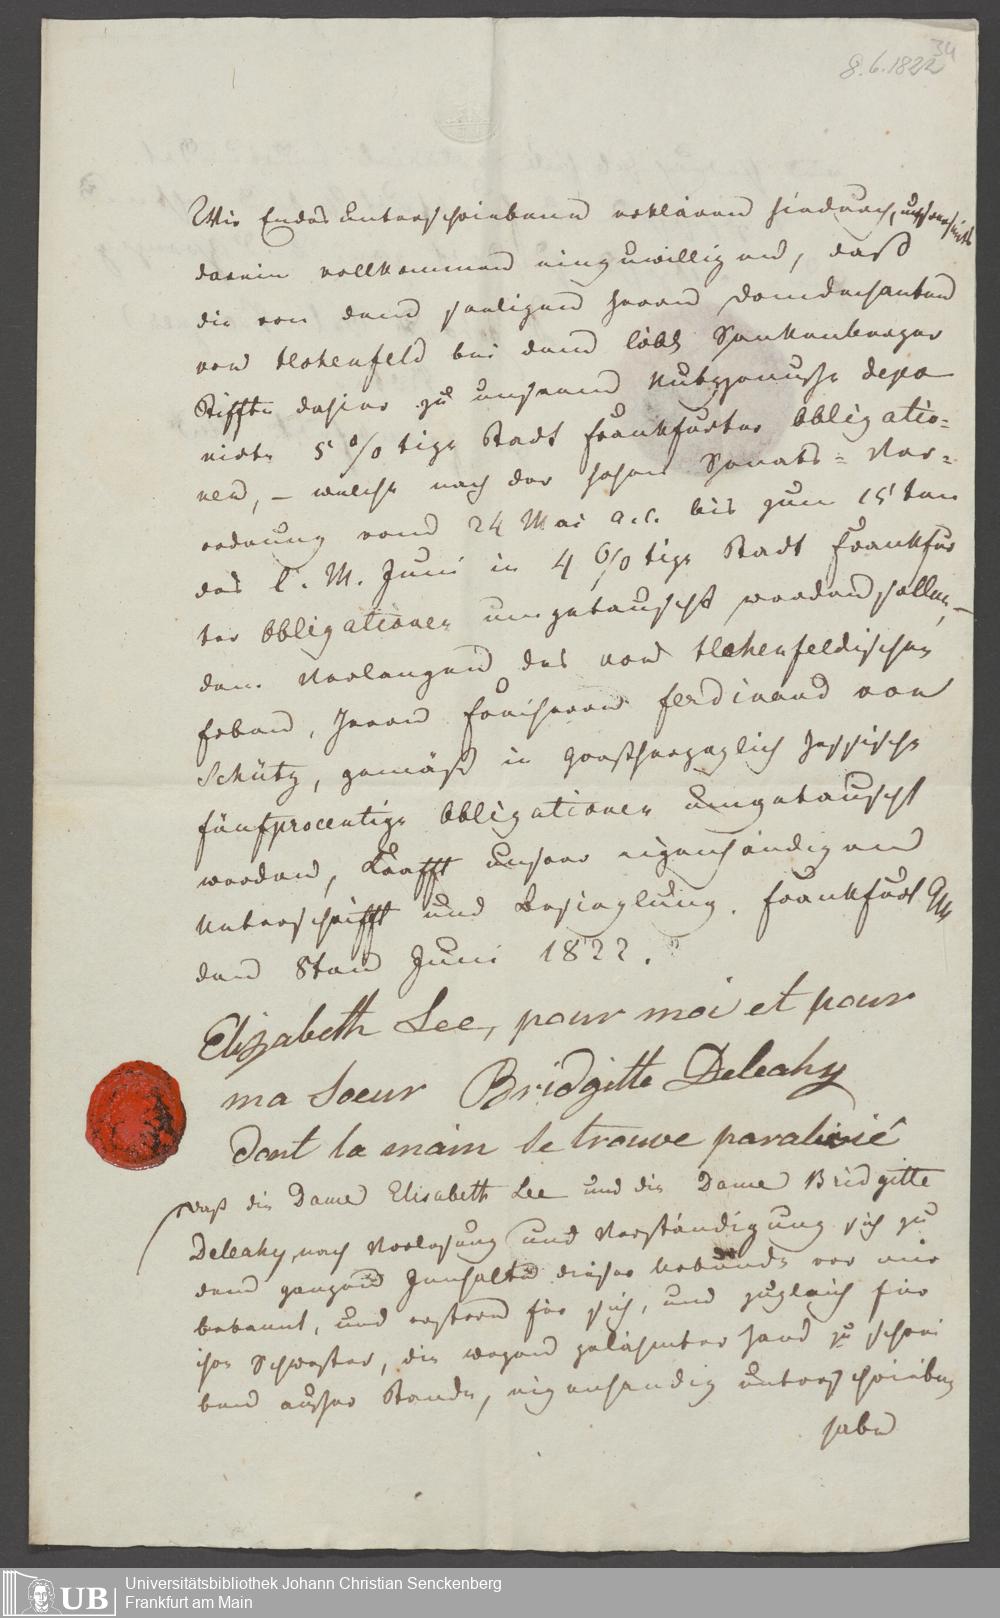 34
8.6.1822
Wir Endes unterschriebene erklären hierdurch, unsrerseits
darein vollkommen einzuwilligen, daß
die von dem seeligen Herrn Domdechanten
von Hohenfeld bei dem löbl Senkenberger
Stiffte dahier zu unserem Nutzgenusse depo
nirte 5 %tige Stadt Frankfurter Obligatio=
nen, – welche nach der hohen Senats=Ver=
ordnung vom 24 Mai a.c. bis zum 15ten
des l. M. Juni in 4 %tige Stadt Frankfur
ter Obligationen umgetauscht werden sollen, –
dem Verlangen des von Hohenfeldischen
Erben, Herrn Freiherrn Ferdinand von
Schütz, gemäß in Großherzoglich Hessische
fünfprocentige Obligationen umgetauscht
werden, Krafft unserer eigenhändigen
Unterschrifft und Besieglung. Frankfurt
den 8ten Juni 1822.
Elizabeth Lee, pour moi et pour
ma soeur Bridgitte Deleahy
dont la main se trouve paralisié
daß die Dame Elisabeth Lee und die Dame Bridgitte
Deleahy, nach Vorlesung und Verständigung sich zu
dem ganzen Innhalte dieser Urkunde vor mir
bekannt, und erstere für sich, und zugleich für
ihre Schwester, die wegen gelähmter Hand zu schrei
ben ausser Stande, eigenhändig unterschrieben
habe
UB
Universitätsbibliothek Johann Christian Senckenberg
Frankfurt am Main